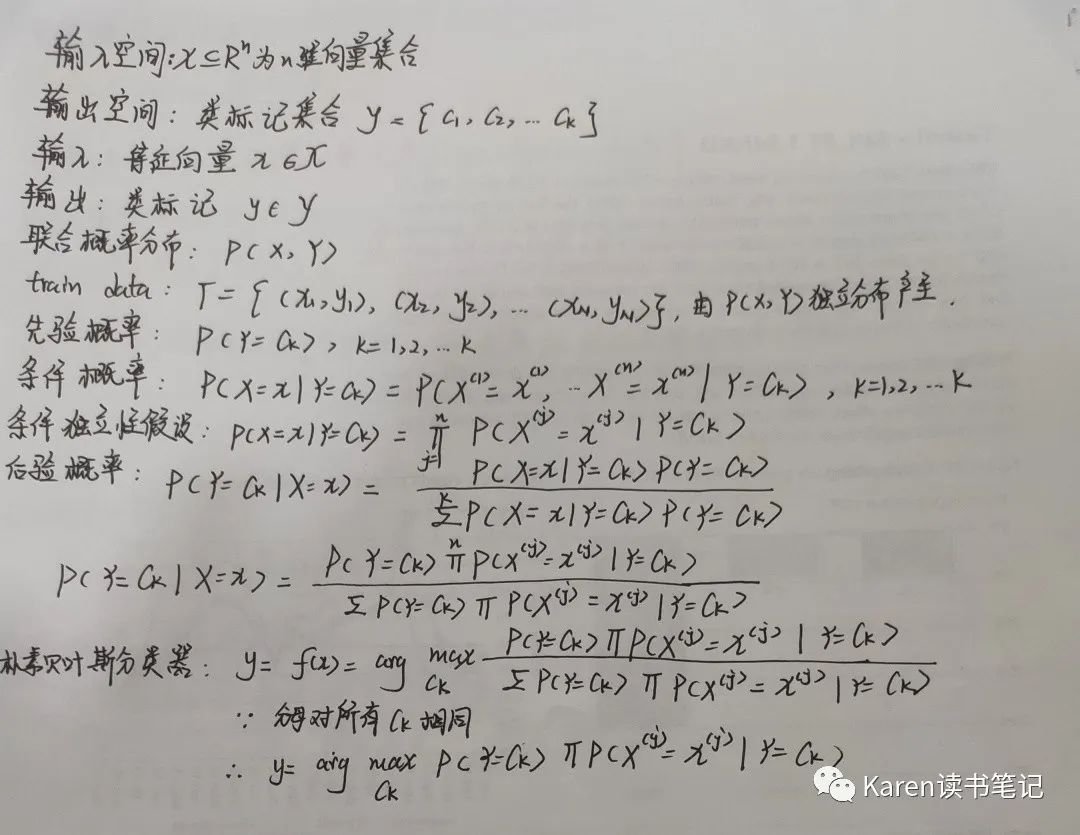 输入空间:X⊆Rⁿ为n维向量集合
输出空间: 类标记集合 Y = { C₁, C₂, … Cₖ }
输入: 特征向量 x ∈ X
输出: 类标记 y ∈ Y
联合概率分布: P(X, Y)
train data: T = { (x₁, y₁), (x₂, y₂), … (x_N, y_N)}, 由 P(X, Y) 独立分布产生.
先验概率: P(Y=Cₖ), k=1,2,…K
条件概率: P(X=x|Y=Cₖ) = P(X⁽¹⁾=x⁽¹⁾, … X⁽ⁿ⁾=x⁽ⁿ⁾ | Y=Cₖ), k=1,2,…K
条件独立性假设: P(X=x|Y=Cₖ) = ∏_{j=1}^{n} P(X^{(j)}=x^{(j)} | Y=Cₖ)
后验概率: P(Y=Cₖ|X=x) = \frac{P(X=x|Y=Cₖ) P(Y=Cₖ)}{∑^{K} P(X=x|Y=Cₖ) P(Y=Cₖ)}
P(Y=Cₖ|X=x) = \frac{P(Y=Cₖ) ∏^{n} P(X^{(j)}=x^{(j)} | Y=Cₖ)}{∑ P(Y=Cₖ) ∏ P(X^{(j)}=x^{(j)} | Y=Cₖ)}
朴素贝叶斯分类器: y = f(x) = arg max_{Cₖ} \frac{P(Y=Cₖ) ∏ P(X^{(j)}=x^{(j)} | Y=Cₖ)}{∑ P(Y=Cₖ) ∏ P(X^{(j)}=x^{(j)} | Y=Cₖ)}
∵ 分母对所有 Cₖ 相同
∴ y = arg max_{Cₖ} P(Y=Cₖ) ∏ P(X^{(j)}=x^{(j)} | Y=Cₖ)
Karen读书笔记